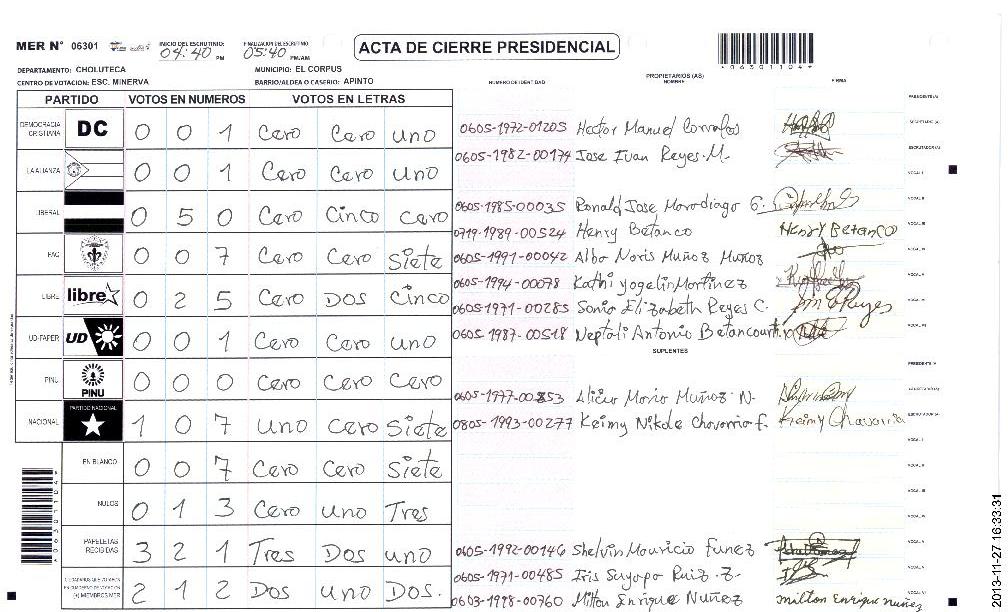 MER N° 06301
INICIO DEL ESCRUTINIO: 04:40 PM
FINALIZACION DEL ESCRUTINIO 05:40 PM/AM
ACTA DE CIERRE PRESIDENCIAL
*063011044*
DEPARTAMENTO: CHOLUTECA
MUNICIPIO: EL CORPUS
CENTRO DE VOTACION: ESC. MINERVA
BARRIO/ALDEA O CASERIO: APINTO
NUMERO DE IDENTIDAD
PROPIETARIOS (AS)
NOMBRE
FIRMA
PARTIDO VOTOS EN NUMEROS VOTOS EN LETRAS
DEMOCRACIA CRISTIANA DC 0 0 1 Cero Cero uno
LA ALIANZA 0 0 1 Cero Cero uno
LIBERAL 0 5 0 Cero Cinco cero
PAC 0 0 7 Cero Cero Siete
LIBRE libre 0 2 5 Cero DOS Cinco
UD-FAPER UD 0 0 1 Cero Cero uno
PINU PINU 0 0 0 Cero Cero Cero
NACIONAL PARTIDO NACIONAL 1 0 7 uno Cero Siete
EN BLANCO 0 0 7 Cero Cero Siete
NULOS 0 1 3 Cero uno Tres
PAPELETAS RECIBIDAS 3 2 1 Tres Dos uno
CIUDADANOS QUE VOTARON EN CUADERNO DE VOTACION (+) MIEMBROS MER 2 1 2 Dos uno Dos.
0605-1972-01205 Hector Manuel
0605-1982-00174 Jose Ivan Reyes.M.
0605-1985-00035 Ronald Jose
0719-1989-00524 Henry Betanco Henry Betanco
0605-1991-00042 Alba Noris Muñoz Muñoz
0605-1994-00078 Kathi yogelin Martinez
0605-1971-00285 Sonia Elizabeth Reyes C.
0605-1987-00518 Neptali Antonio
SUPLENTES
0605-1977-00853 Maria Muñoz N.
0805-1993-00277 Keimy Nikole Chavarria F. Keimy Chavarria
0605-1992-00146 Shelvin Mauricio Funez
0605-1971-00485 Iris Suyapa Ruiz Z.
0603-1998-00760 Milton Enrique Nuñez milton Enrique nuñez
2013-11-27 16:33:31